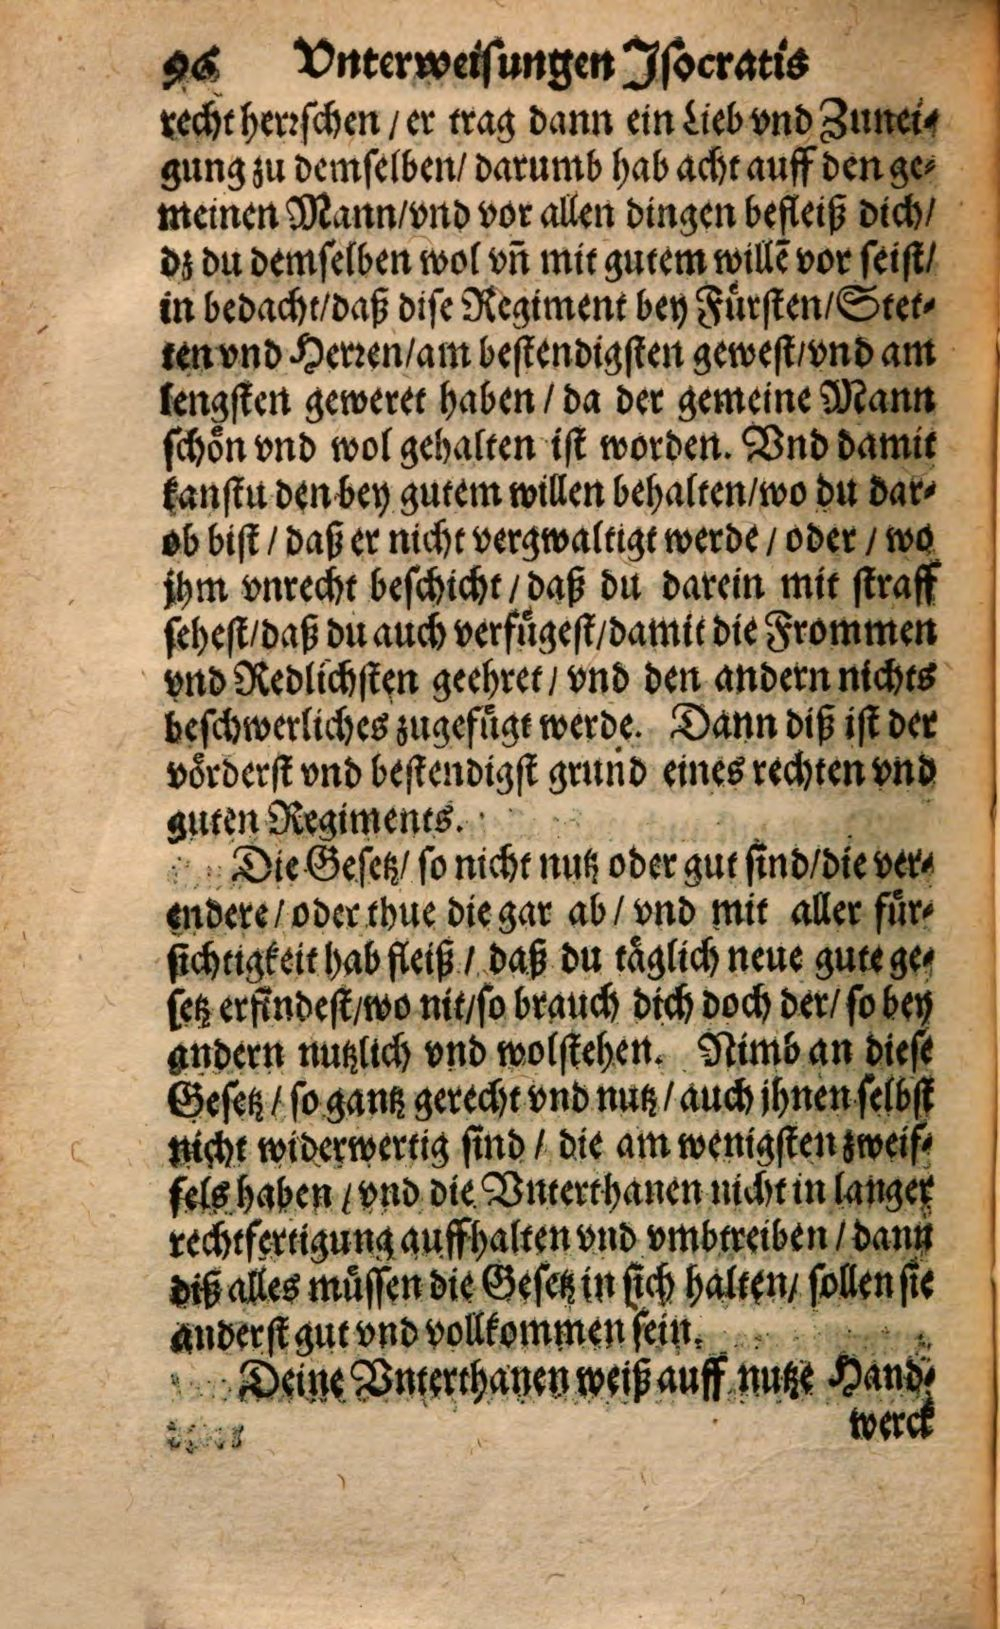 96 Vnterweisungen Jsocratis
recht herrschen / er trag dann ein Lieb vnd Zunei-
gung zu demselben / darumb hab acht auff den ge-
meinen Mann / vnd vor allen dingen befleiß dich /
dz du demselben wol vñ mit gutem willẽ vor seist /
in bedacht / daß dise Regiment bey Fürsten / Stet-
ten vnd Herren / am bestendigsten gewest / vnd am
lengsten geweret haben / da der gemeine Mann
schön vnd wol gehalten ist worden. Vnd damit
kanstu den bey gutem willen behalten / wo du dar-
ob bist / daß er nicht vergwaltigt werde / oder / wo
jhm vnrecht beschicht / daß du darein mit straff
sehest / daß du auch verfügest / damit die Frommen
vnd Redlichsten geehret / vnd den andern nichts
beschwerliches zugefügt werde. Dann diß ist der
vörderst vnd bestendigst grund eines rechten vnd
guten Regiments.
Die Gesetz / so nicht nutz oder gut sind / die ver-
endere / oder thue die gar ab / vnd mit aller für-
sichtigkeit hab fleiß / daß du täglich neue gute ge-
setz erfindest / wo nit / so brauch dich doch der / so bey
andern nutzlich vnd wolstehen. Nimb an diese
Gesetz / so gantz gerecht vnd nutz / auch jhnen selbst
nicht widerwertig sind / die am wenigsten zweif-
fels haben / vnd die Vnterthanen nicht in langer
rechtfertigung auffhalten vnd vmbtreiben / dann
diß alles müssen die Gesetz in sich halten / sollen sie
anderst gut vnd vollkommen sein.
Deine Vnterthanen weiß auff nutze Hand-
werck